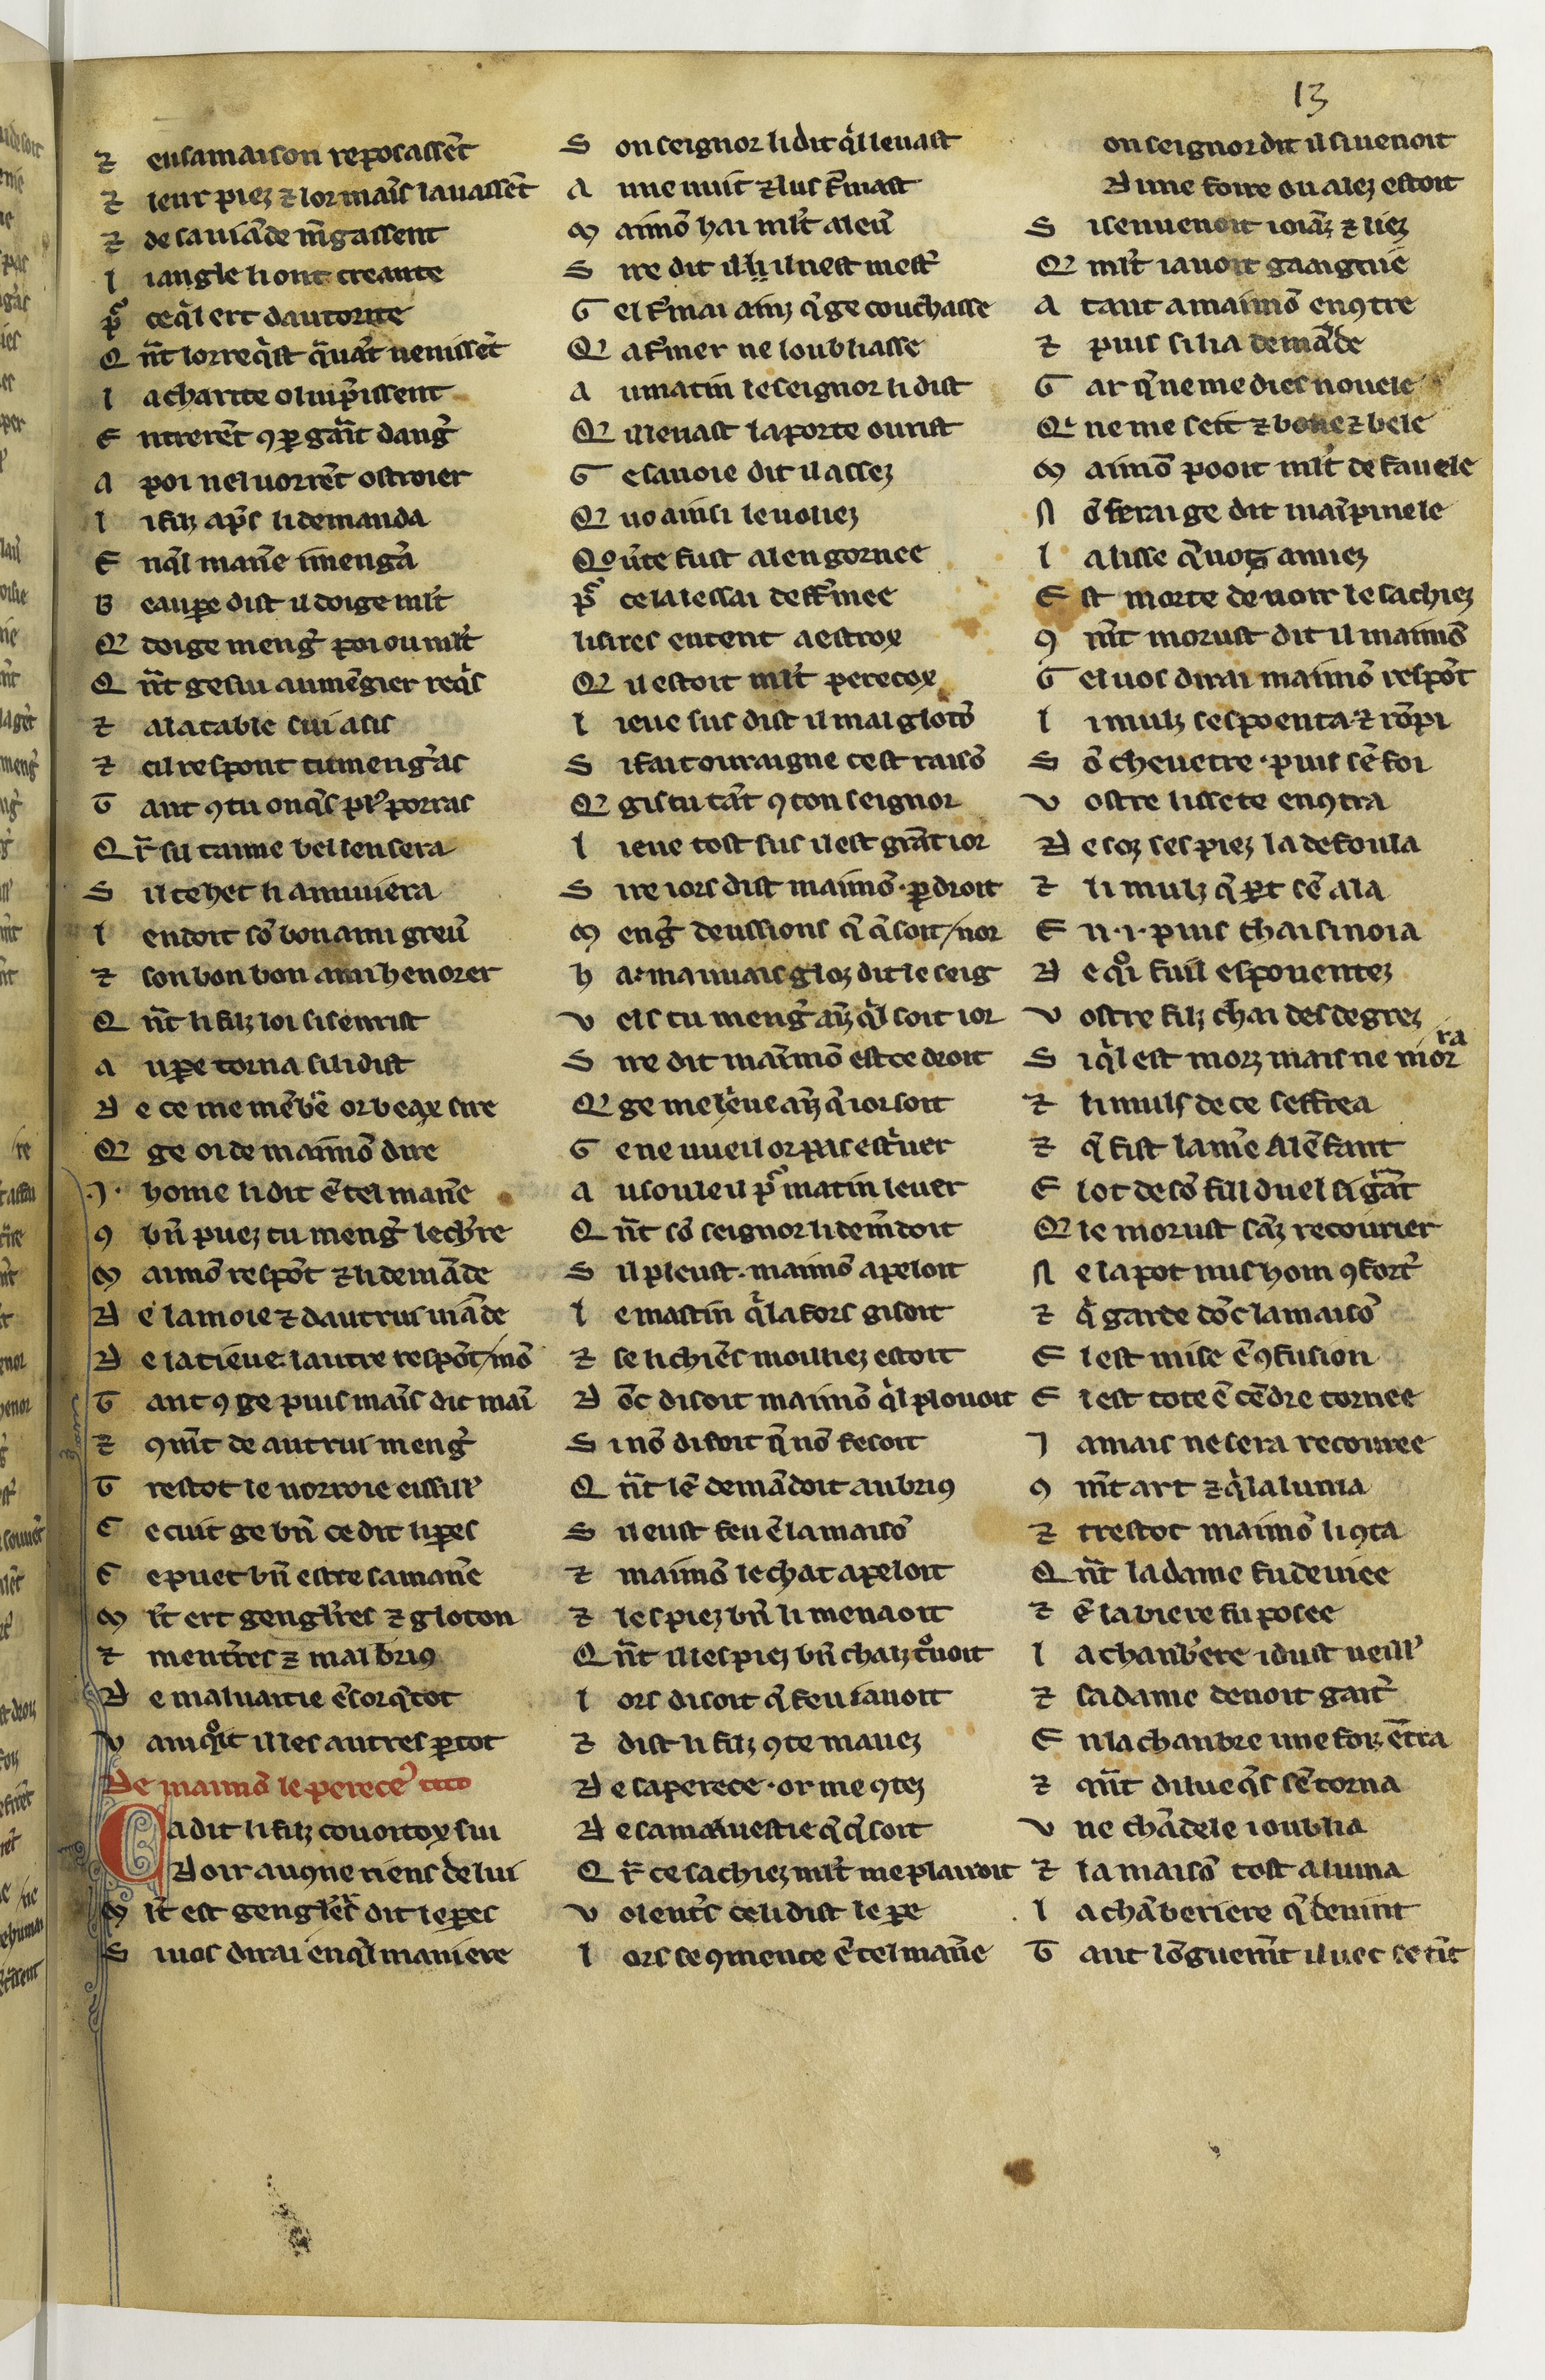 13
⁊ en sa maison reposassẽt
⁊ leur piez ⁊ lor maĩs lauassẽt
⁊ de sa uiãde mẽgassent
l iangle li ont creante
p̃ ce q̃l ert dautorite
Q ñt lor reqi̾st q̃ uãt uenissẽt
l a chartre o lui pi̾ssent
E ntrerẽt ꝯ p gãt dang̾
A poi nel uorrẽt ostroier
l i filz ap̃s li demanda
E n q̃l mañe i meng̾a
B eau pe dist il doige ml̾t
Q doige meng̾ poi ou ml̾t
Q ñt ge sui au mẽgier reqi̾s
⁊ a la table sui asis
⁊ cil respont tu meng̾as
T ant ꝯ tu onq̃s pl̾ porras
Q r̃ su taime bel len sera
S il te het li anuiera
l en doit sõ bon ami greũ
⁊ son bon bon ami henorer
Q ñt li filz loi si sen rist
A u pe torna si li dist
D e ce me mẽbẽ or beax sire
Q ge oi de maimõ dire
.j. home li dit ẽ tel mañe
ꝯ bñ puez tu meng̾ lechr̾e
M aimõ respõt ⁊ li demãde
D e la moie ⁊ dautrui uiãde
D e la tieue lautre respõt/mõ
T ant ꝯ ge puis maĩs dit mai
⁊ ꝯm̃t de autrui meng̾
T restot le uorroie eissill̾
C e cuit ge bñ ce dit li peres
C e puet bñ estre sa mañe
M l̾t ert gengl̾res ⁊ gloton
⁊ ment̾res ⁊ mal briꝯ
D e maluaitie ẽsorq̃tot
V aiuqi̾t il les autres p tot
De maimõ le perece᾽
C a dit li filz couoitox sui
D oir auqne riens de lui
M l̾t est gengl̾es dit le peres
S i uos dirai en q̃l maniere
S on seignor li dit q̃l leuast
A une nuit ⁊ lus fr̾mast
M aimõ hai ml̾t a leũ
S ire dit il il nest mest̾
G el fr̾mai ainz q̃ ge couchasse
Q a fr̾mer ne loubliasse
A u matin le seignor li dist
Q il leuast la porte ourist
G e sauoie dit il assez
Q uo ainsi le uoliez
Q uũte fust a lengornee
p̃ ce la lessai deffr̾mee
li sires entent a estrox
Q il estoit ml̾t perecox
l ieue sus dist il mal glotõ
S i fai touraigne cest raisõ
Q gis tu tãt ꝯ ton seignor
l ieue tost sus il est grãt ior
S ire iors dist maimõ . p droit
M eng̾ deussions q̃ q̃ soit/nor
h a mauuais gloz dit le seig
V els tu meng̾ aĩz q̃l soit ior
S ire dit maimõ est ce droit
Q ge me lieue aĩz q̃ ior soit
G e ne uueil or pas estr̾uer
A u souleil p̃ matin leuer
Q ñt sõ seignor li demãdoit
S il pleust . maimõ apeloit
l e mastin q̃ la fors gisoit
⁊ se li chiẽs moilliez estoit
D õc disoit maimõ q̃l plouoit
S i nõ disoit q̃ nõ fesoit
Q ñt lẽ demãdoit au briꝯ
S il eust feu ẽ la maisõ
⁊ maimõ le chat apeloit
⁊ les piez bñ li menaoit
Q ñt il les piez bñ chaiz tr̾uoit
l ors disoit q̃ feu iauoit
⁊ dist li filz ꝯte mauez
D e sa perece . or me ꝯtez
D e sa maluestie q̃ q̃ soit
Q r̃ ce sachiez ml̾t me plairoit
V olent̾s ce li dist le pe
l ors se ꝯmence ẽ tel mañe
on seignor dit il si uenoit
D une foire ou alez estoit
S i sen uenoit ioiãz ⁊ liez
Q ml̾t i auoit gaaigné
A tant a maimõ enꝯtre
⁊ puis si li a demãde
G ar q̃ ne me dies nouele
Q ne me seit ⁊ bone ⁊ bele
M aimõ pooit ml̾t de fauele
N õ ferai ge dit mais pinele
l a lisse q̃ uos amiez
E st morte de uoir le sachiez
ꝯ m̃t morust dit il maimõ
G el uos dirai maimõ respõt
l i mulz sespoenta . ⁊ rõpi
S õ cheuetre . puis sẽ foi
V ostre lissete enꝯtra
D esoz ses piez la defoula
⁊ li mulz q̃ pt sẽ ala
E n .i. puis chai si noia
D e qoi fu il espouentez
V ostre filz chai des degrez
S i q̃l est morz mais ne mor ra
⁊ li muls de ce seffrea
⁊ q̃ fist la mere a lẽfant
E l ot de sõ fill duel si grãt
Q le morust sãz recourier
N e la pot nus hom ꝯfort̾
⁊ q̃ garde dõc la maisõ
E l est mise ẽ ꝯfusion
E l est tote ẽ cẽdre tornee
J amais ne sera recouree
ꝯ m̃t art ⁊ q̃ laluma
⁊ trestot maimõ li ꝯta
Q ñt la dame fu deuiee
⁊ ẽ la biere fu posee
l a chanb̾ere i dust ueill̾
⁊ sa dame deuoit gait̾
E n la chanbre une foiz ẽtra
⁊ qm̃t diluecq̃s sẽ torna
V ne chãdele i oublia
⁊ la maisõ tost aluma
l a chãberiere q̃ deuint
T ant lõguem̃t iluec se tĩt